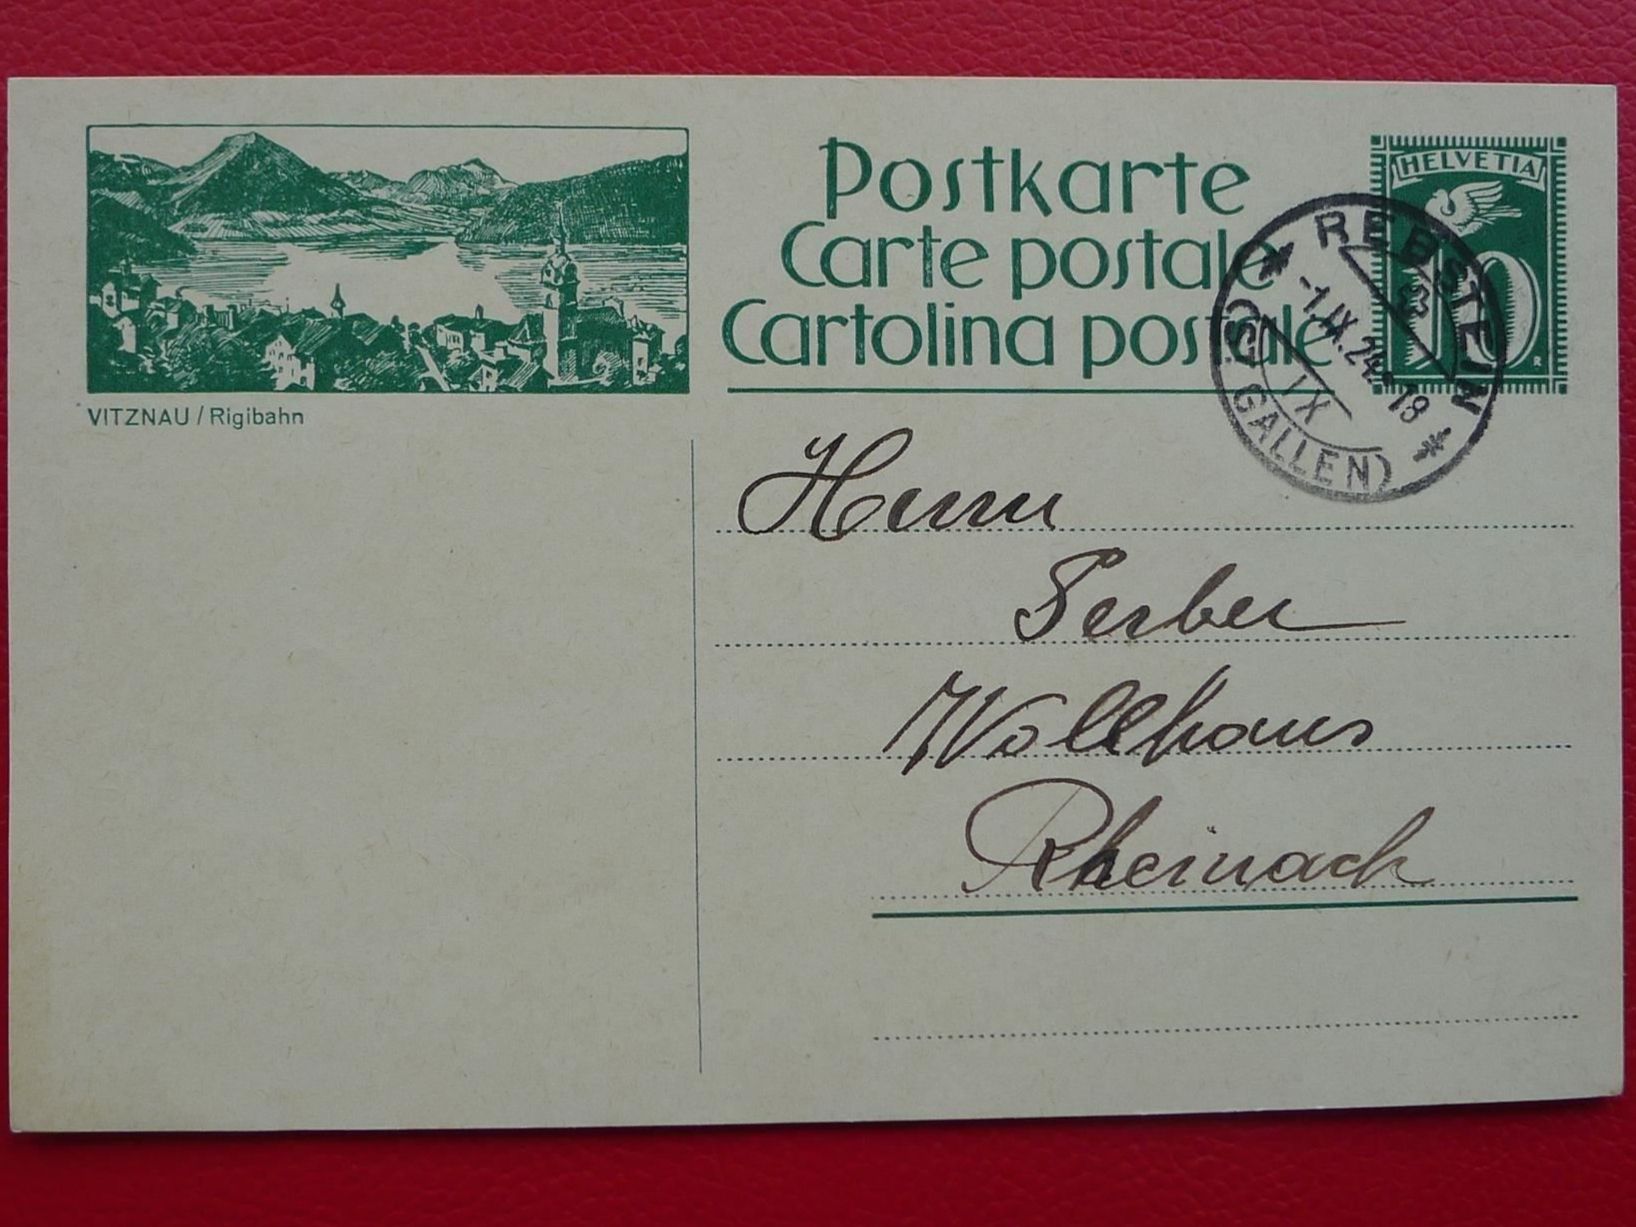 Postkarte
Carte postale
Cartolina postale
HELVETIA
10
REBSTEIN
-1.IX.24.-18
IX
(ST. GALLEN)
VITZNAU / Rigibahn
Herrn
Gerber
Wollhaus
Rheinach